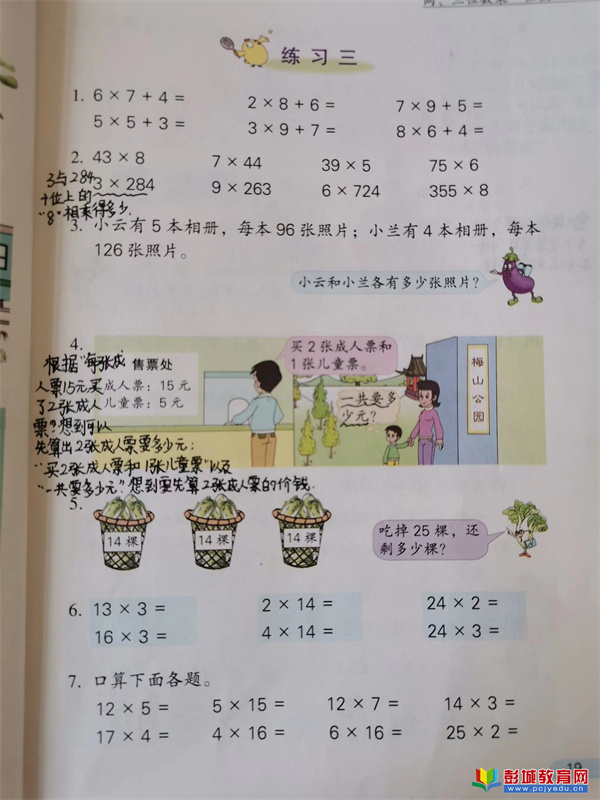 练习三
1. 6×7+4= 2×8+6= 7×9+5=
5×5+3= 3×9+7= 8×6+4=
2. 43×8 7×44 39×5 75×6
3×284 9×263 6×724 355×8
3与284
十位上的
"8"相乘得多少.
3. 小云有5本相册，每本96张照片；小兰有4本相册，每本
126张照片。
小云和小兰各有多少张照片？
4.
售票处
成人票：15元
儿童票：5元
买2张成人票和
1张儿童票。
一共要多
少元？
梅山公园
根据"每张成
人票15元买
了2张成人
票"想到可以
先算出2张成人票要多少元；
"买2张成人票和1张儿童票"以及
"一共要多少元？"想到要先算2张成人票的价钱.
5.
14棵 14棵 14棵
吃掉25棵，还
剩多少棵？
6. 13×3= 2×14= 24×2=
16×3= 4×14= 24×3=
7. 口算下面各题。
12×5= 5×15= 12×7= 14×3=
17×4= 4×16= 6×16= 25×2=
19
彭城教育网
www.pcjyedu.cn